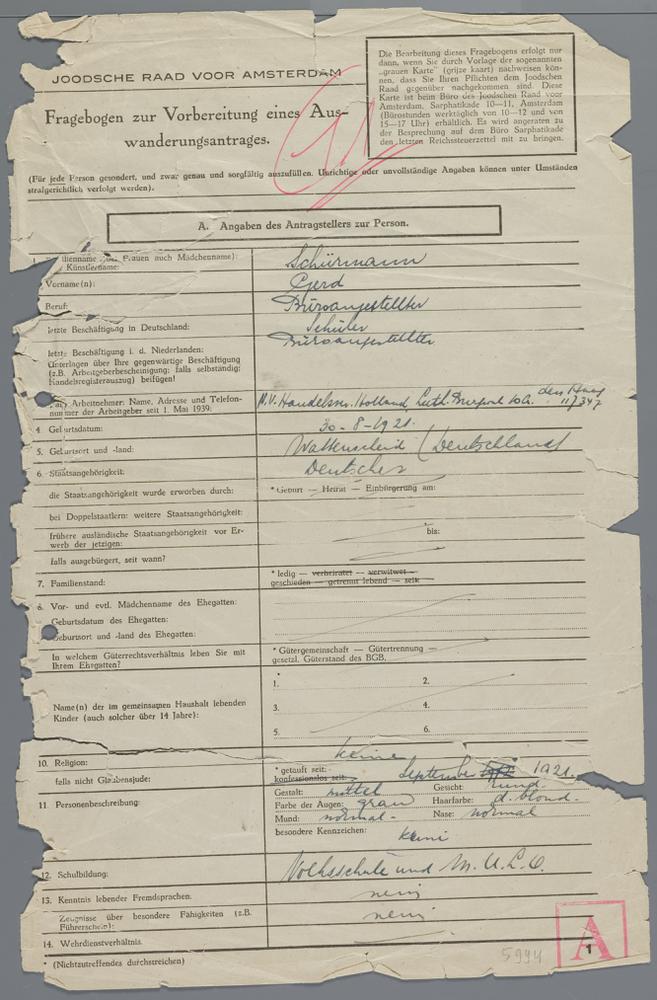 JOODSCHE RAAD VOOR AMSTERDAM
Fragebogen zur Vorbereitung eines Aus-
wanderungsantrages.
Die Bearbeitung dieses Fragebogens erfolgt nur
dann, wenn Sie durch Vorlage der sogenannten
„grauen Karte" (grijze kaart) nachweisen kön-
nen, dass Sie Ihren Pflichten dem Joodschen
Raad gegenüber nachgekommen sind. Diese
Karte ist beim Büro des Joodschen Raad voor
Amsterdam, Sarphatikade 10—11, Amsterdam
(Bürostunden werktäglich von 10—12 und von
15—17 Uhr) erhältlich. Es wird angeraten zu
der Besprechung auf dem Büro Sarphatikade
den letzten Reichssteuerzettel mit zu bringen.
(Für jede Person gesondert, und zwar genau und sorgfältig auszufüllen. Unrichtige oder unvollständige Angaben können unter Umständen
strafgerichtlich verfolgt werden).
A. Angaben des Antragstellers zur Person.
Frauen auch Mädchenname): Schürmann
Künstlername:
Vorname(n): Gerd
Beruf: Büroangestellter
letzte Beschäftigung in Deutschland: Schüler
letzte Beschäftigung i. d. Niederlanden: Büroangestellter
Unterlagen über Ihre gegenwärtige Beschäftigung
(z.B. Arbeitgeberbescheinigung; falls selbständig:
Handelsregisterauszug) beifügen!
Arbeitnehmer: Name, Adresse und Telefon-
nummer der Arbeitgeber seit 1. Mai 1939: N.V. Handelsver. Holland, Luth. den Haag
117347
4 Geburtsdatum: 30-8-1921.
5. Geburtsort und -land: Wattenscheid (Deutschland)
6. Staatsangehörigkeit: Deutscher
die Staatsangehörigkeit wurde erworben durch: * Geburt — Heirat — Einbürgerung am:
bei Doppelstaatlern: weitere Staatsangehörigkeit:
frühere ausländische Staatsangehörigkeit vor Er- bis:
werb der jetzigen:
falls ausgebürgert, seit wann?
7. Familienstand: * ledig — verheiratet — verwitwet —
geschieden — getrennt lebend — seit
8. Vor- und evtl. Mädchenname des Ehegatten:
Geburtsdatum des Ehegatten:
Geburtsort und -land des Ehegatten:
In welchem Güterrechtsverhältnis leben Sie mit * Gütergemeinschaft — Gütertrennung —
Ihrem Ehegatten? gesetzl. Güterstand des BGB.
Name(n) der im gemeinsamen Haushalt lebenden
Kinder (auch solcher über 14 Jahre):
1. 2.
3. 4.
5. 6.
10. Religion: keine
falls nicht Glaubensjude: * getauft seit:
konfessionslos seit: September 1921.
11 Personenbeschreibung: Gestalt: mittel Gesicht: rund.
Farbe der Augen: grau Haarfarbe: d. blond.
Mund: normal- Nase: normal
besondere Kennzeichen: keine
12. Schulbildung: Volksschule und M.U.L.O.
13. Kenntnis lebender Fremdsprachen. nein
Zeugnisse über besondere Fähigkeiten (z.B. nein
Führerschein):
14. Wehrdienstverhältnis.
* (Nichtzutreffendes durchstreichen)
5944
A
1